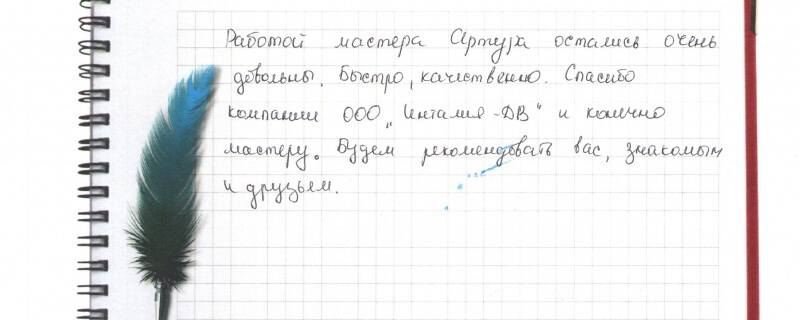 Работой мастера Артура остались очень
довольны. Быстро, качественно. Спасибо
компании ООО „Инталия-ДВ" и конечно
мастеру. Будем рекомендовать вас, знакомым
и друзьям.